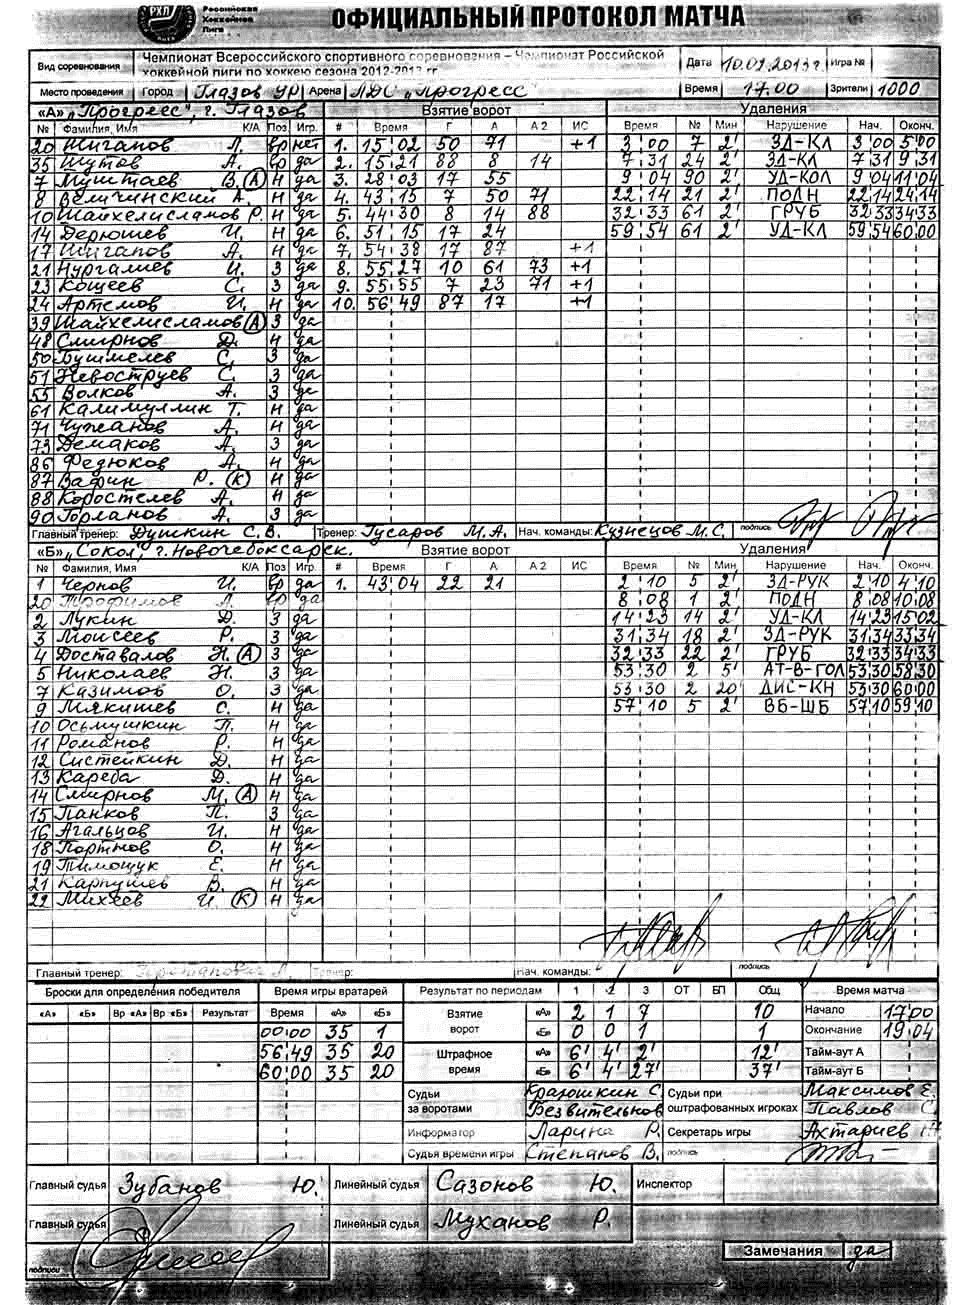 РХЛ Российская Хоккейная Лига ОФИЦИАЛЬНЫЙ ПРОТОКОЛ МАТЧА
Вид соревнования Чемпионат Всероссийского спортивного соревнования – Чемпионат Российской хоккейной лиги по хоккею сезона 2012-2013 гг Дата 10.02.2013г. Игра №
Место проведения Город Глазов УР Арена ЛДС „Прогресс" Время 17.00 Зрители 1000
«А» „Прогресс", г. Глазов Взятие ворот Удаления
№ Фамилия, Имя К/А Поз Игр. # Время Г А А 2 ИС Время № Мин Нарушение Нач. Оконч.
20 Шиганов Л. вр нет 1. 15 02 50 71 +1 3 00 7 2' ЗД-КЛ 3 00 5 00
35 Шутов А. вр да 2. 15 21 88 8 14 7 31 24 2' ЗД-КЛ 7 31 9 31
7 Муштаев В. (А) Н да 3. 28 03 17 55 9 04 90 2' УД-КОЛ 9 04 11 04
8 Величинский А. Н да 4. 43 15 7 50 71 22 14 21 2' ПОДН 22 14 24 14
10 Шайхелисламов Р. Н да 5. 44 30 8 14 88 32 33 61 2' ГРУБ 32 33 34 33
14 Дерюшев И. Н да 6. 51 15 17 24 59 54 61 2' УД-КЛ 59 54 60 00
17 Шиганов А. Н да 7. 54 38 17 87 +1
21 Нургалиев И. З да 8. 55 27 10 61 73 +1
23 Кощеев С. З да 9. 55 55 7 23 71 +1
24 Артемов И. Н да 10. 56 49 87 17 +1
39 Шайхелисламов (А) З да
48 Смирнов Д. Н да
50 Бушмелев С. З да
51 Невоструев С. З да
55 Волков А. З да
61 Калимуллин Т. Н да
71 Чужанов А. Н да
73 Демаков А. З да
86 Федюков А. Н да
87 Вафин Р. (К) Н да
88 Коростелев А. Н да
90 Горланов А. З да
Главный тренер: Душкин С.В. Тренер: Гусаров М.А. Нач. команды: Кузнецов М.С. подпись
«Б» „Сокол", г. Новочебоксарск. Взятие ворот Удаления
№ Фамилия, Имя К/А Поз Игр. # Время Г А А 2 ИС Время № Мин Нарушение Нач. Оконч.
1 Чернов И. вр да 1. 43 04 22 21 2 10 5 2' ЗД-РУК 2 10 4 10
20 Трофимов Л. вр да 8 08 1 2' ПОДН 8 08 10 08
2 Лукин Д. З да 14 23 14 2' УД-КЛ 14 23 15 02
3 Моисеев Р. З да 31 34 18 2' ЗД-РУК 31 34 33 34
4 Доставалов Н. (А) З да 32 33 22 2' ГРУБ 32 33 34 33
5 Николаев Н. З да 53 30 2 5' АТ-В-ГОЛ 53 30 58 30
7 Казимов О. З да 53 30 2 20' ДИС-КН 53 30 60 00
9 Мякишев С. Н да 57 10 5 2' ВБ-ШБ 57 10 59 10
10 Осьмушкин П. Н да
11 Романов Р. Н да
12 Систейкин Д. Н да
13 Кареба Д. Н да
14 Смирнов М. (А) Н да
15 Панков П. З да
16 Агальцов И. Н да
18 Портнов О. Н да
19 Тимощук Е. Н да
21 Карпушев В. Н да
22 Михеев И. (К) Н да
Главный тренер: Тренер: Нач. команды: подпись
Броски для определения победителя Время игры вратарей Результат по периодам 1 2 3 ОТ БП Общ Время матча
«А» «Б» Вр «А» Вр «Б» Результат Время «А» «Б» Взятие ворот «А» 2 1 7 10 Начало 17 00
00:00 35 1 «Б» 0 0 1 1 Окончание 19 04
56 49 35 20 Штрафное время «А» 6' 4' 2' 12' Тайм-аут А
60 00 35 20 «Б» 6' 4' 27' 37' Тайм-аут Б
Судьи за воротами Краюшкин С. Судьи при оштрафованных игроках Максимов Е.
Безвительнов Павлов С.
Информатор Ларина Р. Секретарь игры Ахтариев
Судья времени игры Степанов В. подпись
Главный судья Зубанов Ю. Линейный судья Сазонов Ю. Инспектор
Главный судья Линейный судья Муханов Р.
подписи Замечания да